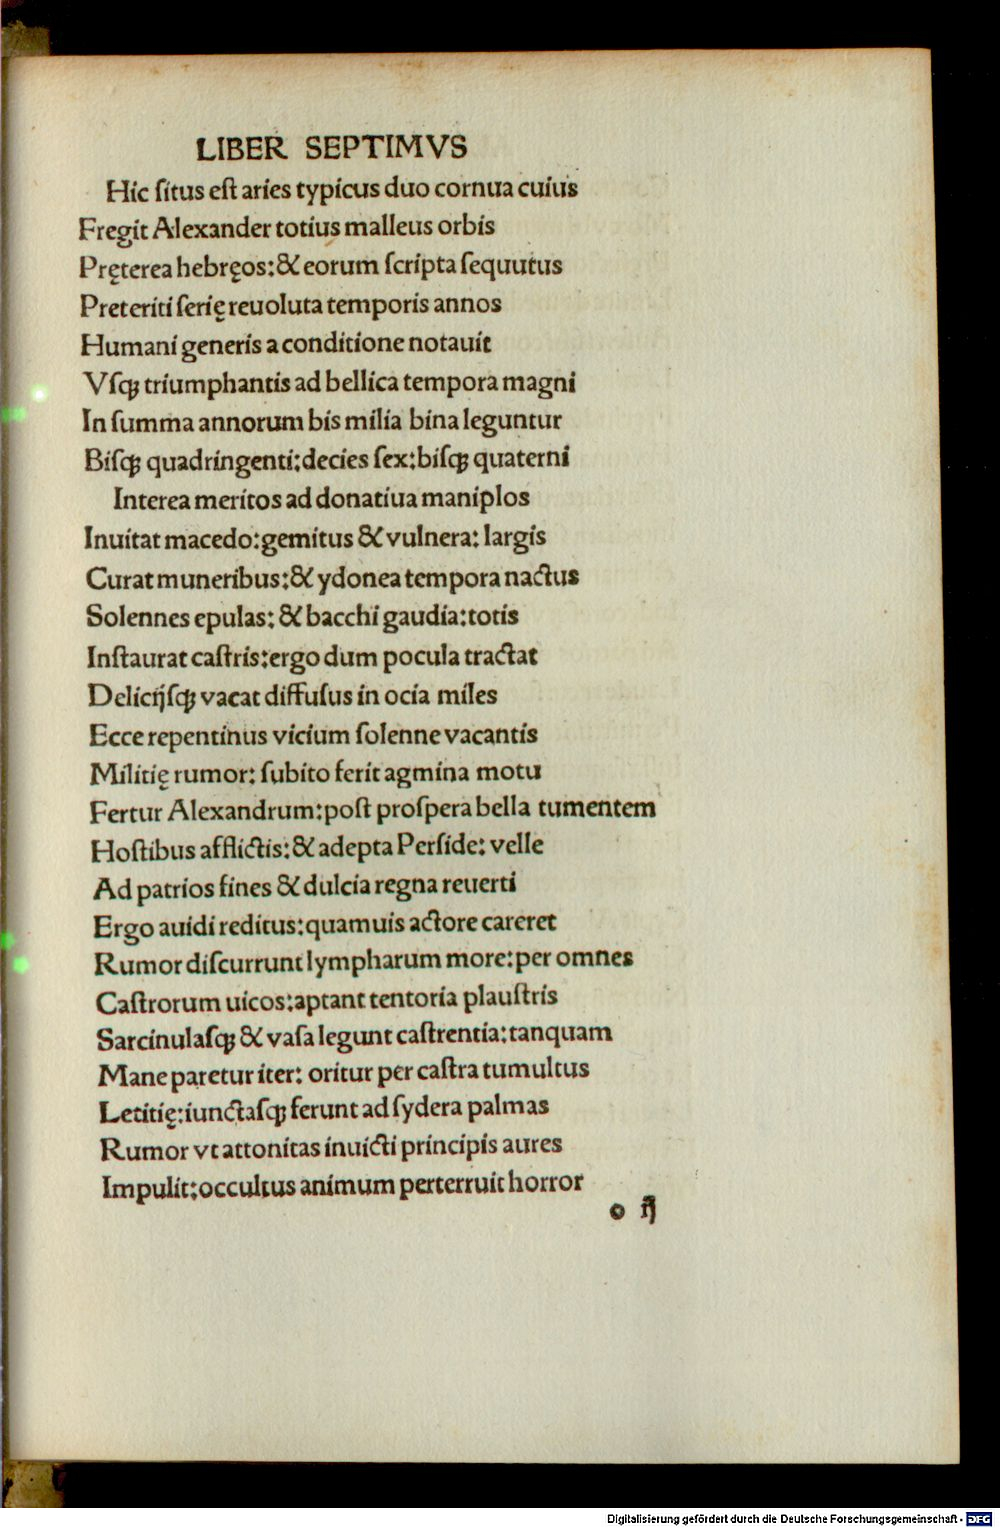 LIBER SEPTIMVS
Hic ſitus eſt aries typicus duo cornua cuius
Fregit Alexander totius malleus orbis
Pręterea hebręos:& eorum ſcripta ſequutus
Preteriti ſerię reuoluta temporis annos
Humani generis a conditione notauit
Vſqꝫ triumphantis ad bellica tempora magni
In ſumma annorum bis milia bina leguntur
Biſqꝫ quadringenti:decies ſex:biſqꝫ quaterni
Interea meritos ad donatiua maniplos
Inuitat macedo:gemitus & vulnera: largis
Curat muneribus:& ydonea tempora nactus
Solennes epulas: & bacchi gaudia:totis
Inſtaurat caſtris:ergo dum pocula tractat
Delicijſqꝫ vacat diffuſus in ocia miles
Ecce repentinus vicium ſolenne vacantis
Militię rumor: ſubito ferit agmina motu
Fertur Alexandrum:poſt proſpera bella tumentem
Hoſtibus afflictis:& adepta Perſide: velle
Ad patrios fines & dulcia regna reuerti
Ergo auidi reditus:quamuis actore careret
Rumor diſcurrunt lympharum more:per omnes
Caſtrorum uicos:aptant tentoria plauſtris
Sarcinulaſqꝫ & vaſa legunt caſtrentia:tanquam
Mane paretur iter: oritur per caſtra tumultus
Letitię:iunctaſqꝫ ferunt ad ſydera palmas
Rumor vt attonitas inuicti principis aures
Impulit:occultus animum perterruit horror
o ij
Digitalisierung gefördert durch die Deutsche Forschungsgemeinschaft - DFG